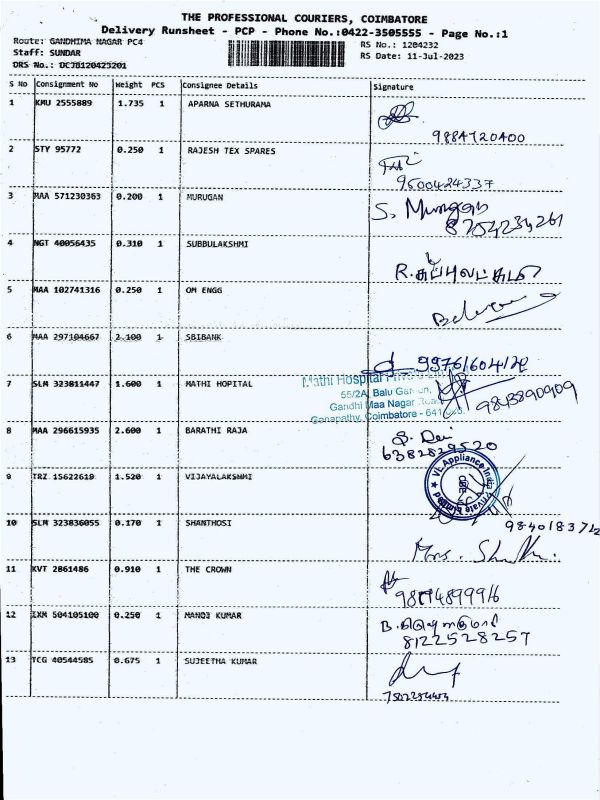 THE PROFESSIONAL COURIERS, COIMBATORE
Delivery Runsheet - PCP - Phone No.:0422-3505555 - Page No.:1
Route: GANDHIMA NAGAR PC4 RS No.: 1204232
Staff: SUNDAR RS Date: 11-Jul-2023
DRS No.: DCJB120423201
S No Consignment No Weight PCS Consignee Details Signature
1 KMU 2555889 1.735 1 APARNA SETHURAMA
9884720400
2 STY 95772 0.250 1 RAJESH TEX SPARES
9500424337
3 MAA 571230363 0.200 1 MURUGAN
S. Murugan
8754234261
4 NGT 40056435 0.310 1 SUBBULAKSHMI
R.சுப்புலட்சுமி
5 MAA 102741316 0.250 1 OM ENGG
6 MAA 297104667 2.100 1 SBIBANK
7 SLM 323811447 1.600 1 MATHI HOPITAL
Mathi Hospital
55/2A, Balu Garden,
Gandhi Maa Nagar Road
Ganapathy, Coimbatore - 641
9843890909
8 MAA 296615935 2.600 1 BARATHI RAJA
6382829520
9 TRZ 15622619 1.520 1 VIJAYALAKSHMI
VL Appliance India Private Limited
10 SLM 323836055 0.170 1 SHANTHOSI
Mrs.
11 KVT 2861486 0.910 1 THE CROWN
12 IXM 504105100 0.250 1 MANOJ KUMAR
8122528257
13 TCG 40544585 0.675 1 SUJEETHA KUMAR